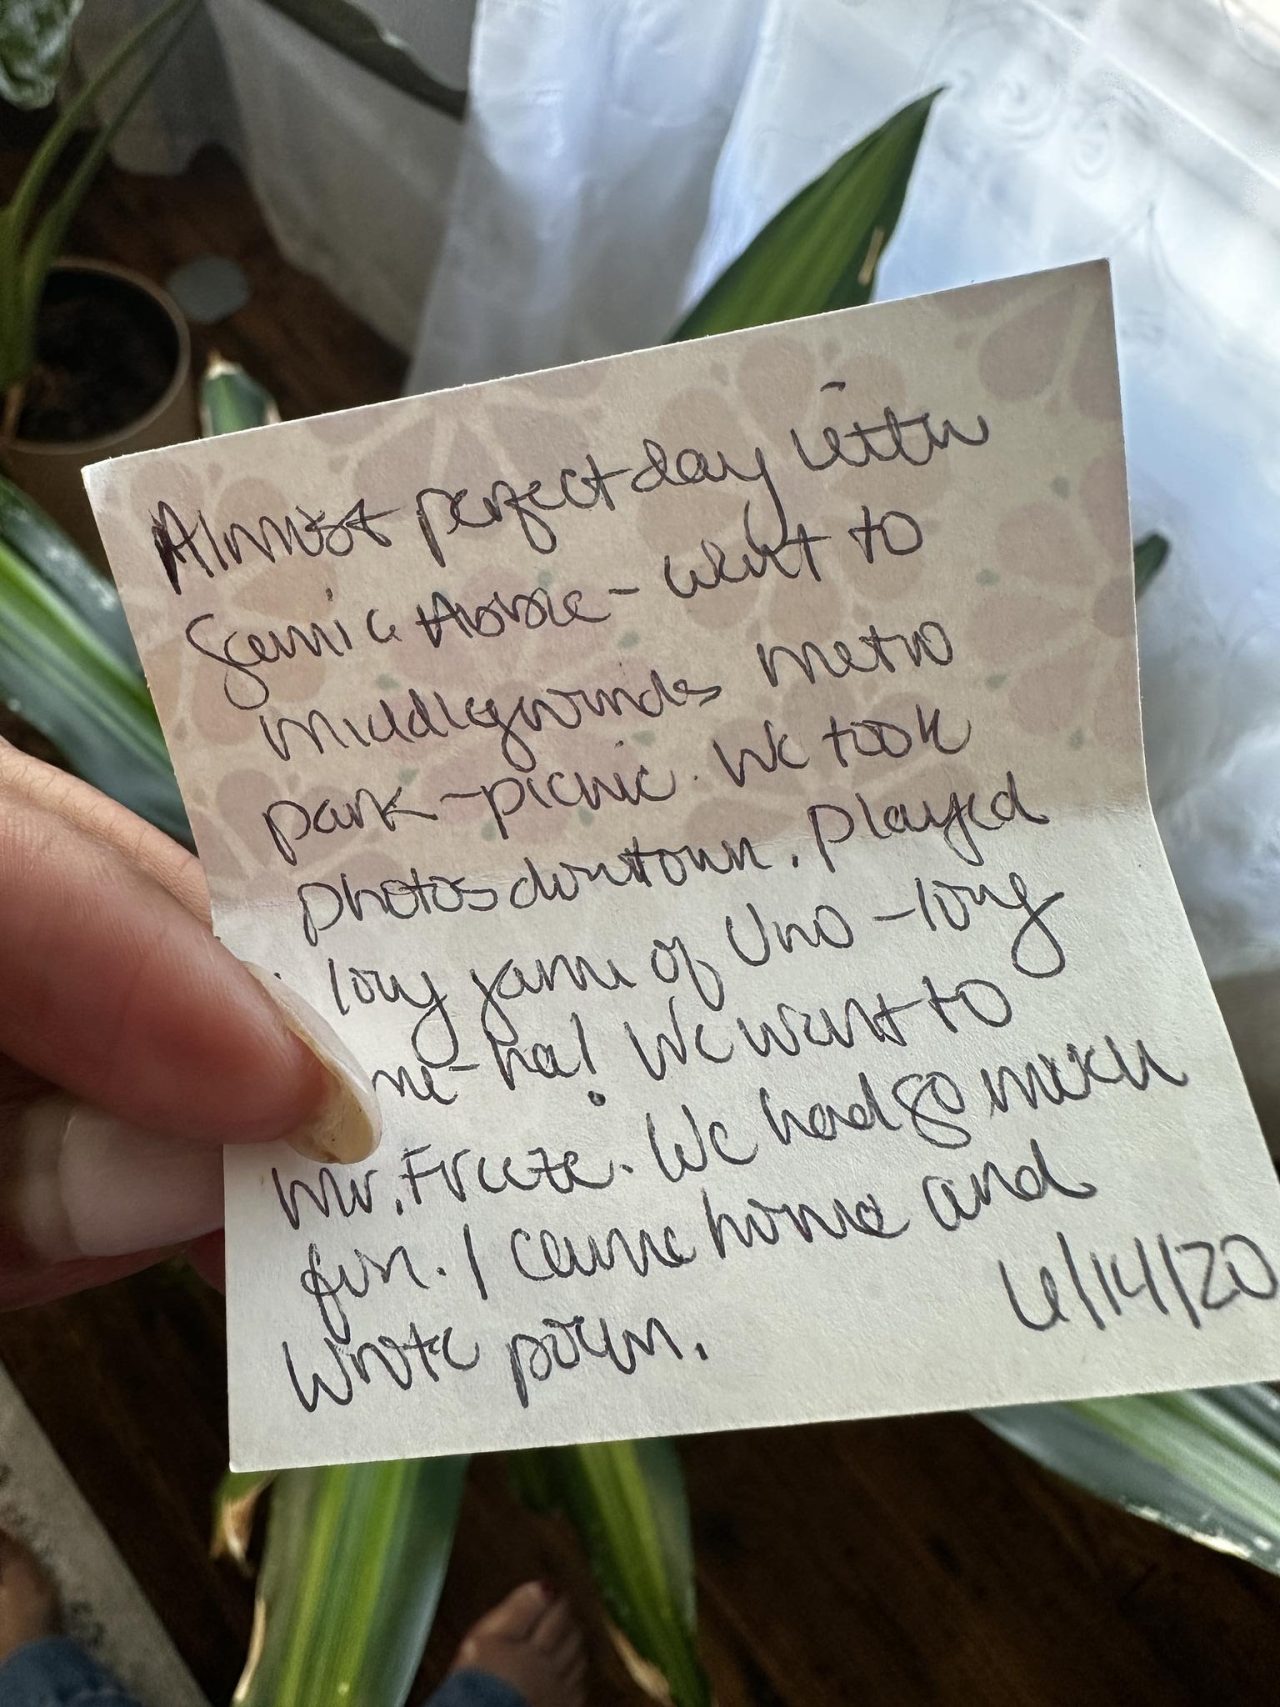 Almost perfect day with
& Abbie - went to
middlegrounds metro
park - picnic. We took
photos downtown. Played
long game of Uno - long
me - ha! We went to
Mr. Freeze. We had so much
fun. I came home and
wrote poem.
6/14/20